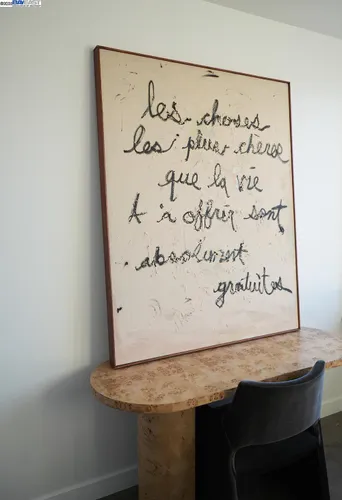 les choses
les plus chères
que la vie
t à offrir sont
absolument
gratuites